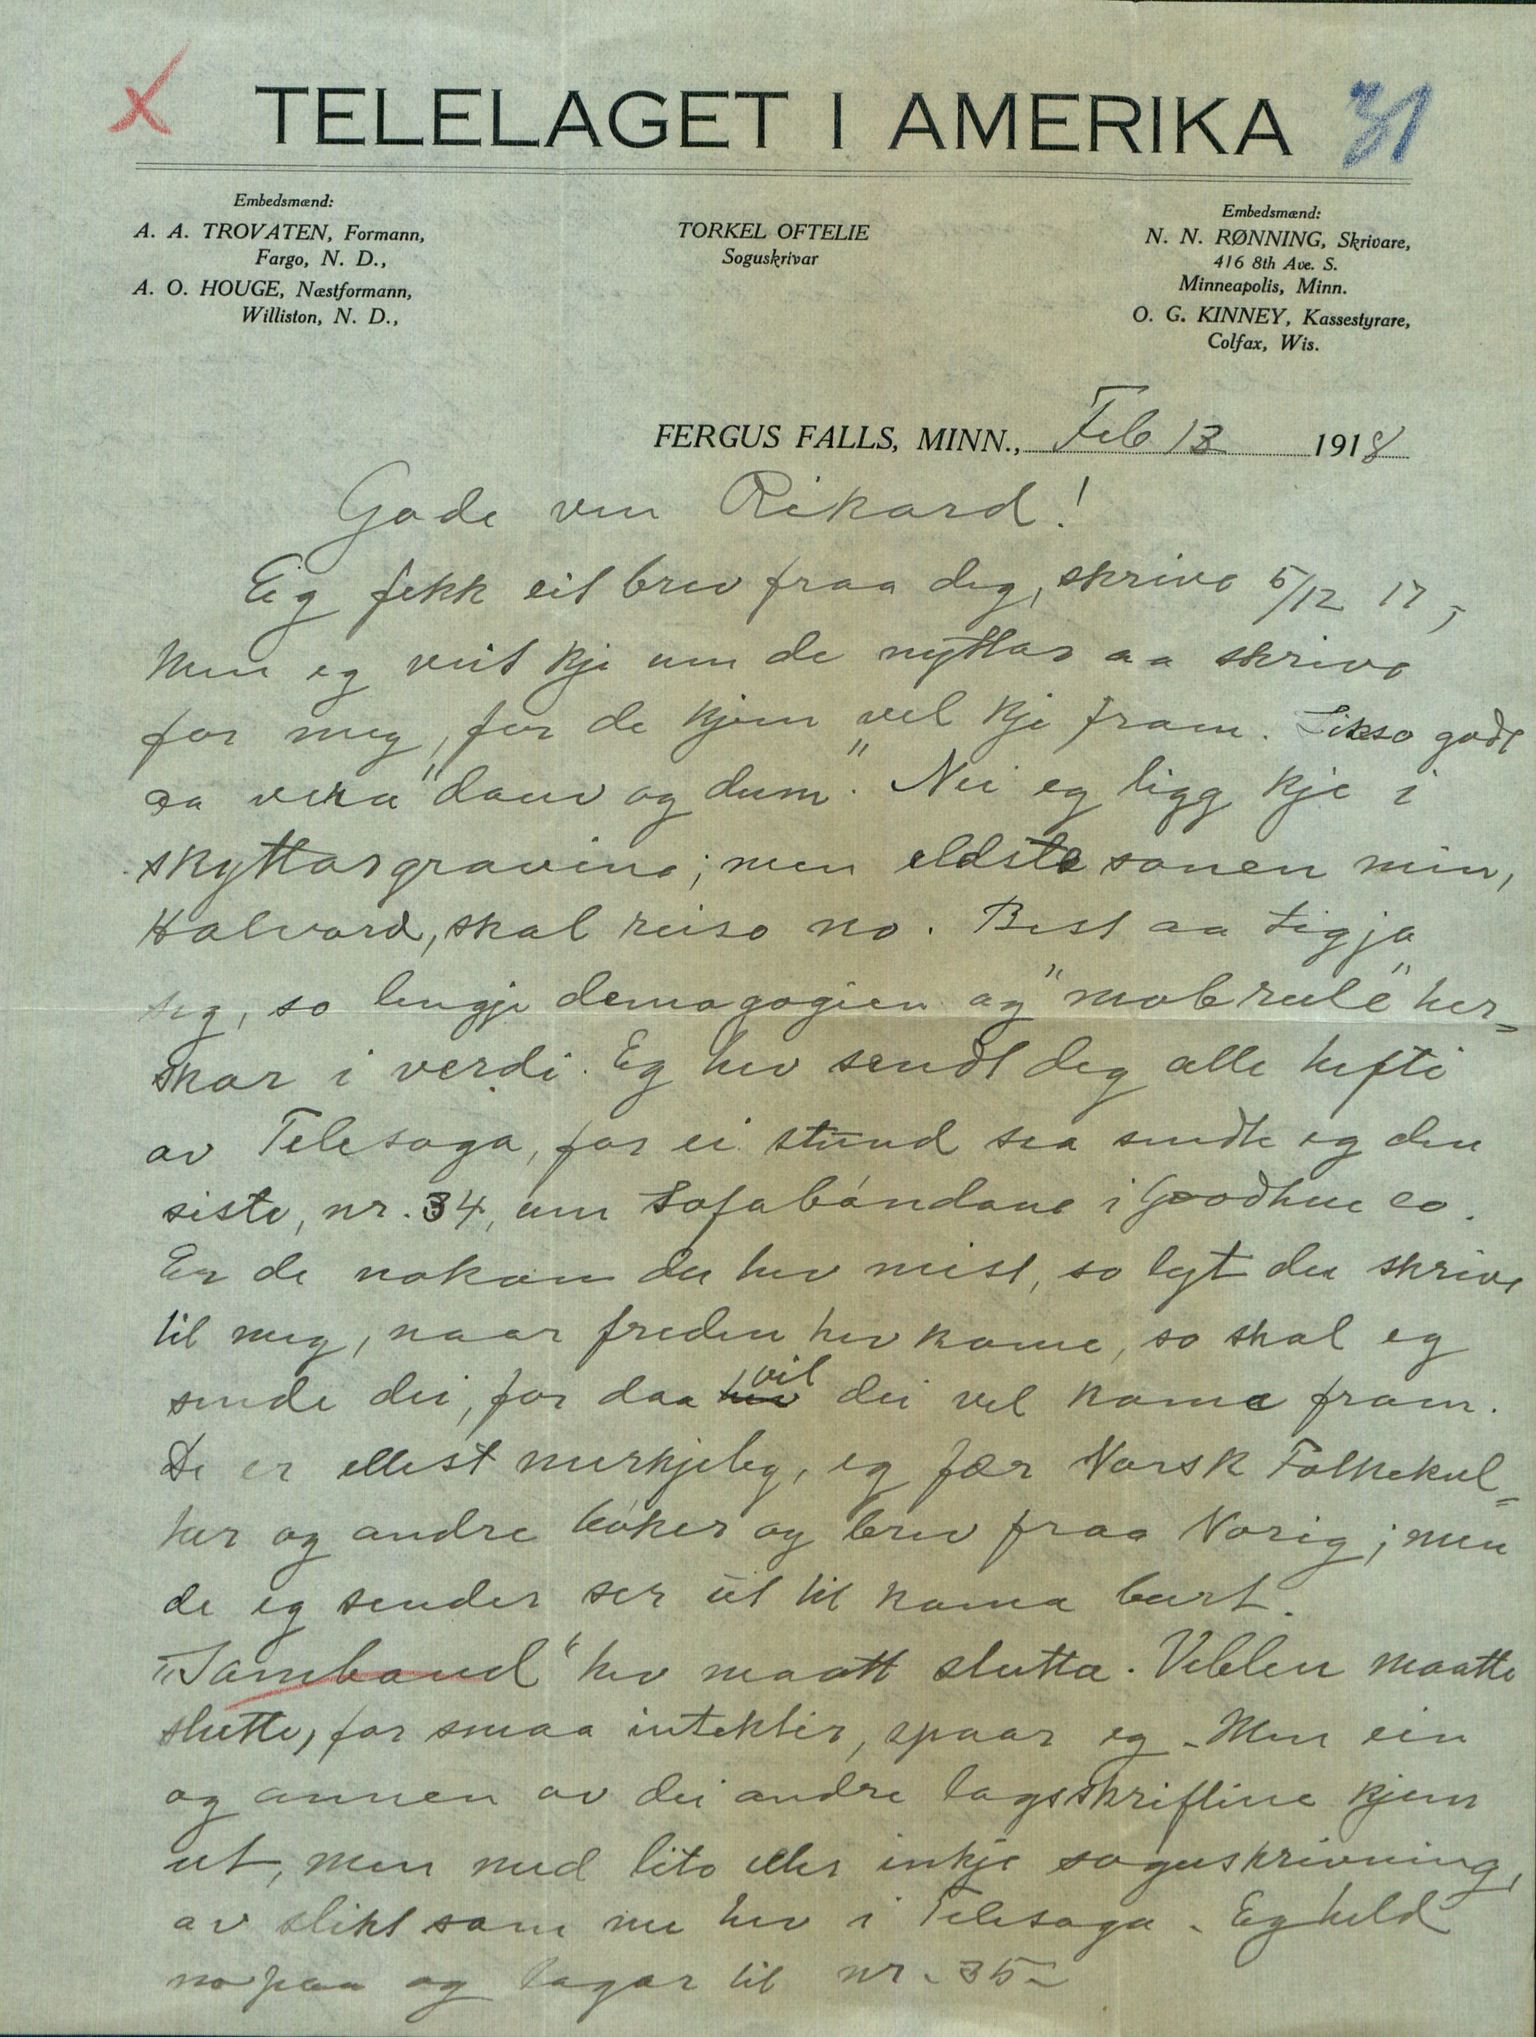 TELELAGET I AMERIKA
31
Embedsmænd:
A. A. TROVATEN, Formann,
Fargo, N. D.,
A. O. HOUGE, Næstformann,
Williston, N. D.,
TORKEL OFTELIE
Soguskrivar
Embedsmænd:
N. N. RØNNING, Skrivare,
416 8th Ave. S.
Minneapolis, Minn.
O. G. KINNEY, Kassestyrare,
Colfax, Wis.
FERGUS FALLS, MINN., Feb 13 1918
Gode ven Rikard!
Eig fekk eit brev fraa deg, skrivo 5/12 17,
men eg veit kje um de nyttar aa skrivo
for meg, for de kjem vel kje fram. Likso godt
aa vera "dauv og dum". Nei eg ligg kje i
skyttargravino; men eldste sonen min,
Halvard, skal reiso no. Best aa tigja
so lengje demagogien og "mobrule" her=
skar i verdi. Eg hev sendt deg alle hefti
av Telesoga, for ei stund sea sendte eg den
siste, nr. 34, um Sofabóndane i Goodhue co.
Er de nokon du hev mist, so lyt du skrive
til meg, naar freden hev kome, so skal eg
sende dei, for daa vil dei vel koma fram.
De er ellest merkjeleg, eg fær Norsk Folkekul=
tur og andre bóker og brev fraa Norig; men
de eg sender ser ut til koma burt.
"Samband" hev maatt slutta. Veblen maatte
slutte, for smaa intekter, spaar eg. Men ein
og annen av dei andre lagsskriftine kjem
ut, men med lito eller inkje soguskrivning,
av slikt som me hev i Telesoga. Eg held
no paa og lagar til nr. 35.